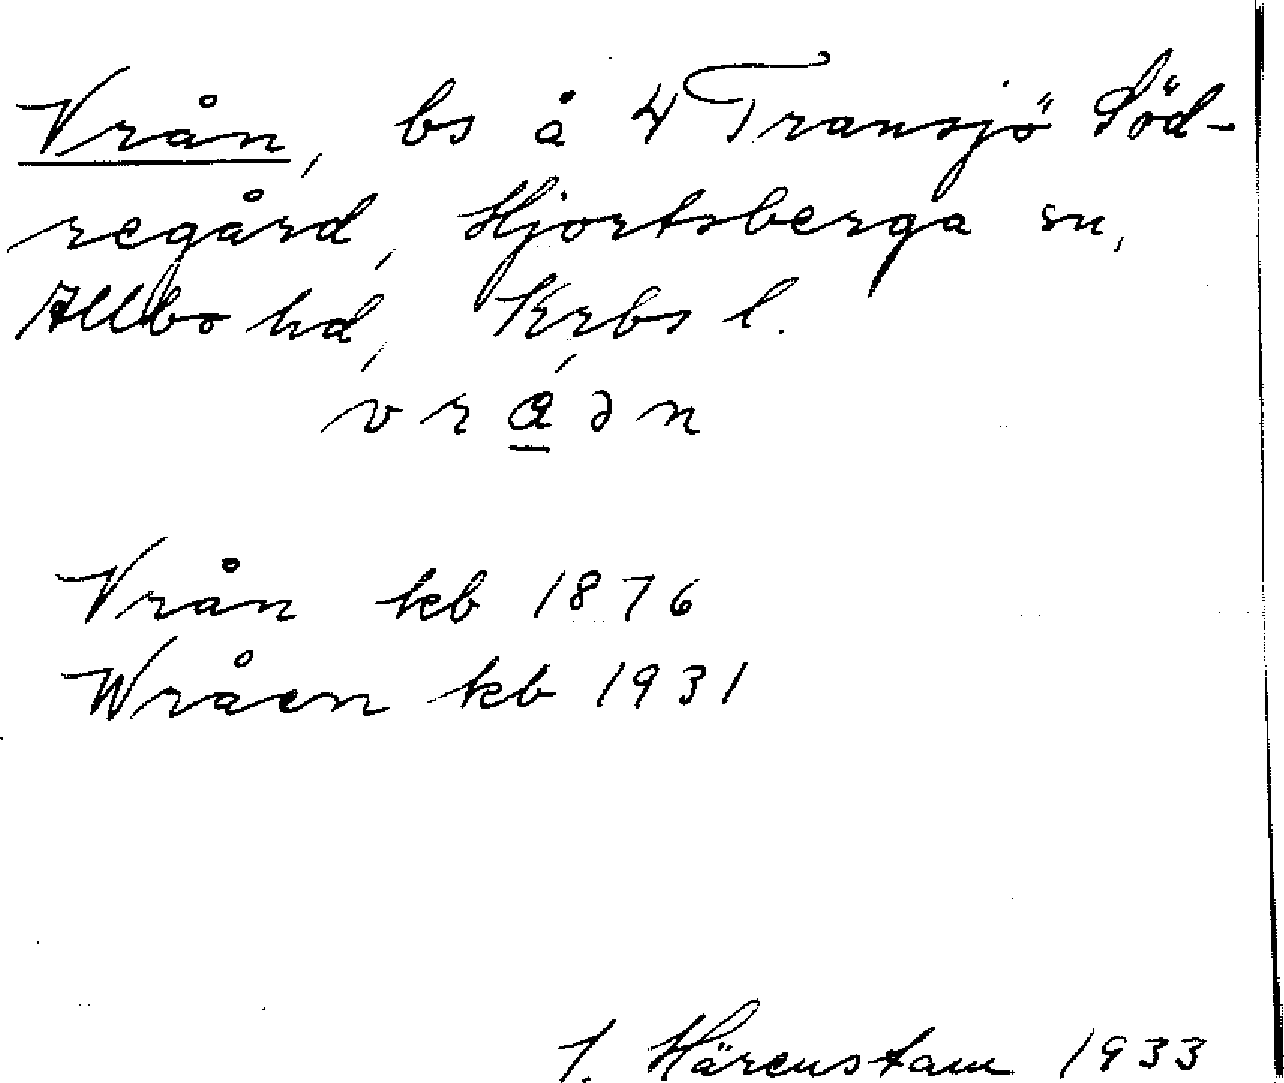 Vrån, bs å 4 Transjö Söd-
regård, Hjortsberga sn,
Allbo hd, Krbs l.
Vrån kb 1876
Wråen kb 1931
J. Härenstam 1933